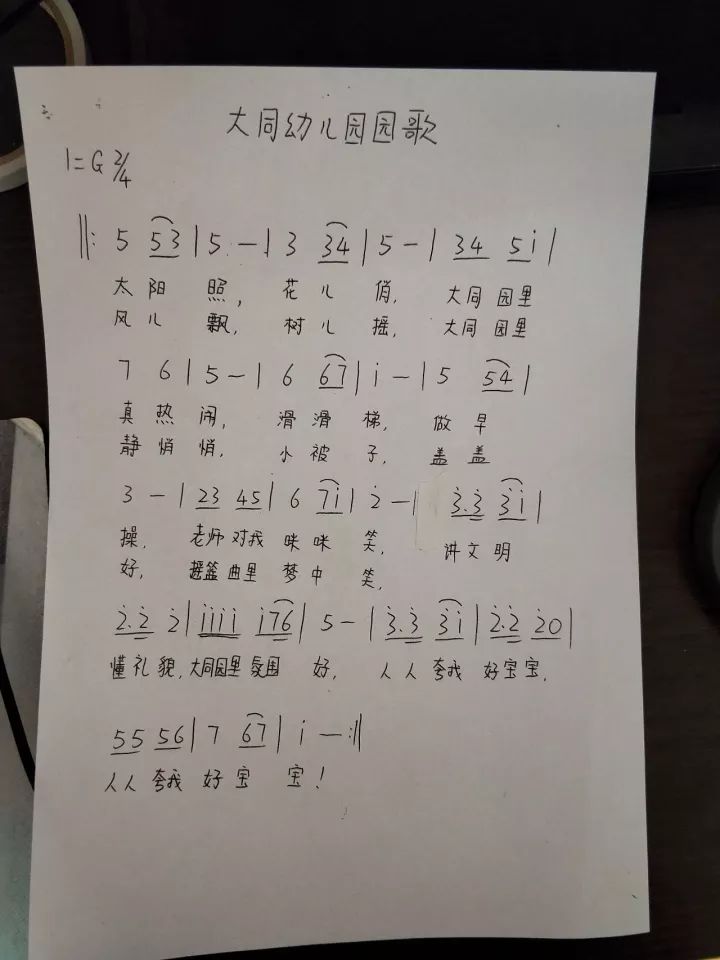 大同幼儿园园歌
1=G 2/4
‖: 5 53 | 5 - | 3 34 | 5 - | 34 5i |
太阳 照, 花儿 俏, 大同 园里
风儿 飘, 树儿 摇, 大同 园里
7 6 | 5 - | 6 67 | i - | 5 54 |
真热 闹, 滑滑 梯, 做早
静悄 悄, 小被 子, 盖盖
3 - | 23 45 | 6 7i | 2̇ - | 3̇.3̇ 3̇i |
操, 老师 对我 咪咪 笑, 讲文 明
好, 摇篮 曲里 梦中 笑,
2̇.2̇ 2̇ | iiii i76 | 5 - | 3̇.3̇ 3̇i | 2̇.2̇ 2̇0 |
懂礼貌,大同园里 氛围 好, 人人 夸我 好宝宝,
55 56 | 7 67 | i - :‖
人人 夸我 好宝 宝!